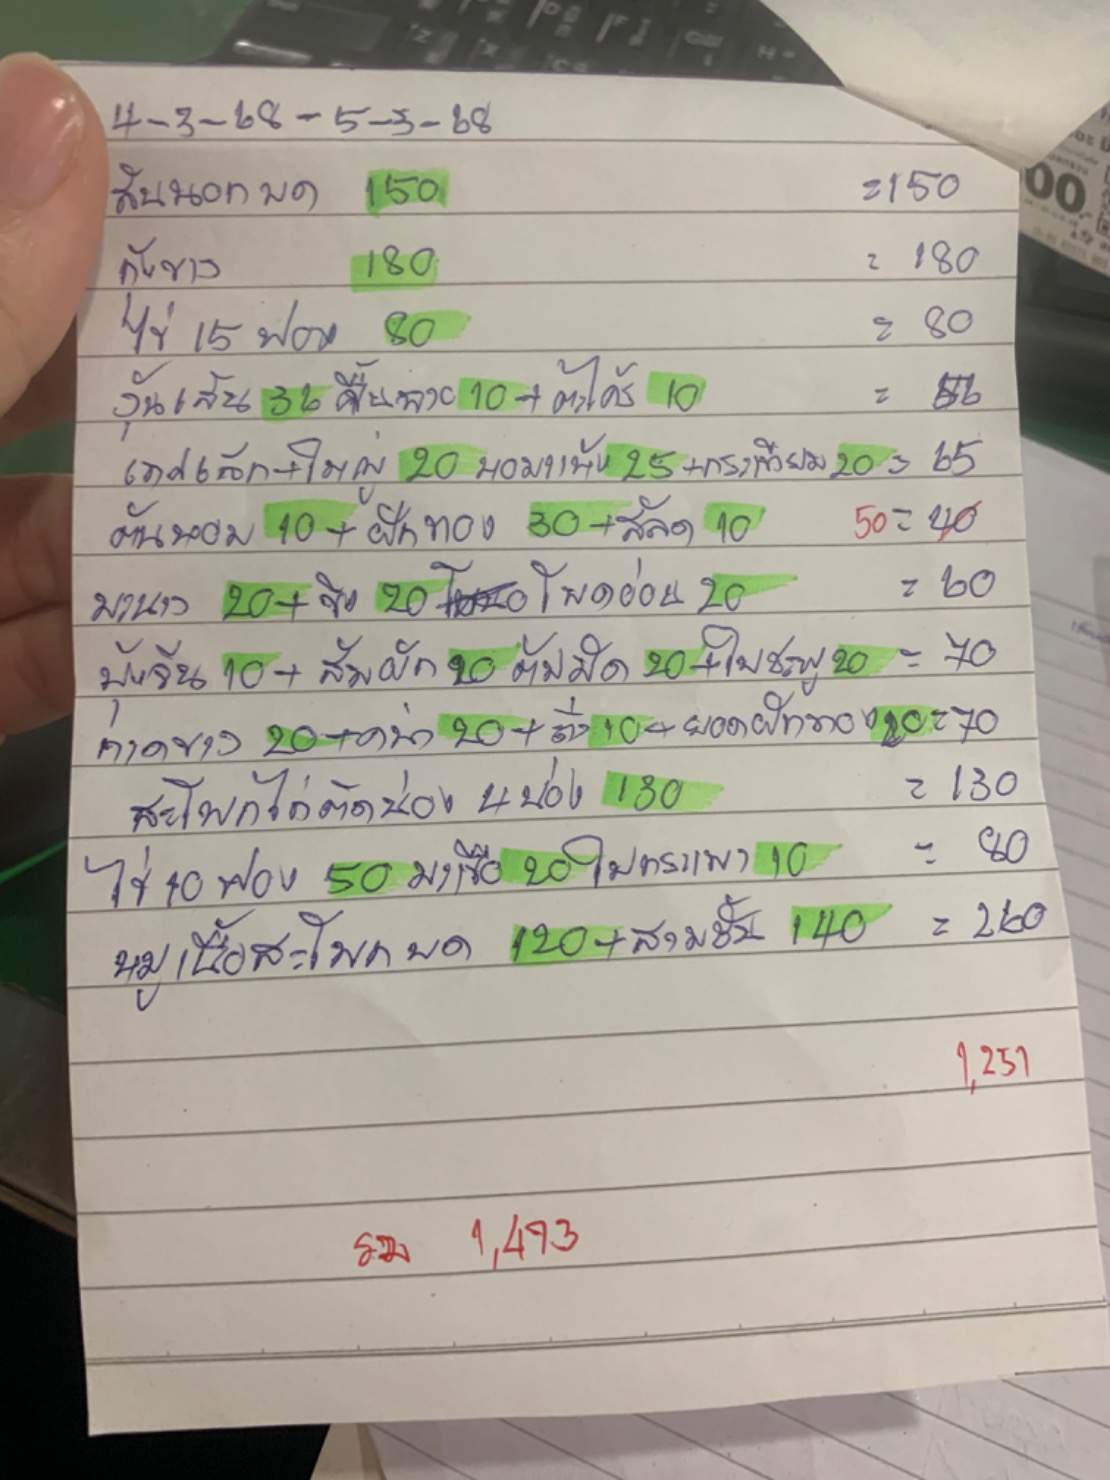 4-3-68 - 5-3-68
สันนอกบด 150 = 150
กังขาว 180 = 180
ไข่ 15 ฟอง 80 = 80
วุ้นเส้น 36 ขึ้นฉ่าย 10 + ตะไคร้ 10 = 56
เทศเล็ก + ใหญ่ 20 หอมแดง 25 + กระเทียม 20 = 65
ต้นหอม 10 + ฝักทอง 30 + สลัด 10 50 = 40
มะนาว 20 + ขิง 20 โพดอ่อน 20 = 60
บุ้งจีน 10 + ส้มผัก 20 ตัมมืด 20 + ใบชะพู 20 = 70
กาดขาว 20 + คน้า 20 + ติ่ง 10 + ยอดฝักทอง 20 = 70
สะโพกไก่ติดน่อง 4 น่อง 130 = 130
ไข่ 10 ฟอง 50 มะเขือ 20 ใบกระเพา 10 = 80
หมูเนื้อสะโพกบด 120 + สามชั้น 140 = 260
1,251
รวม 1,493
00